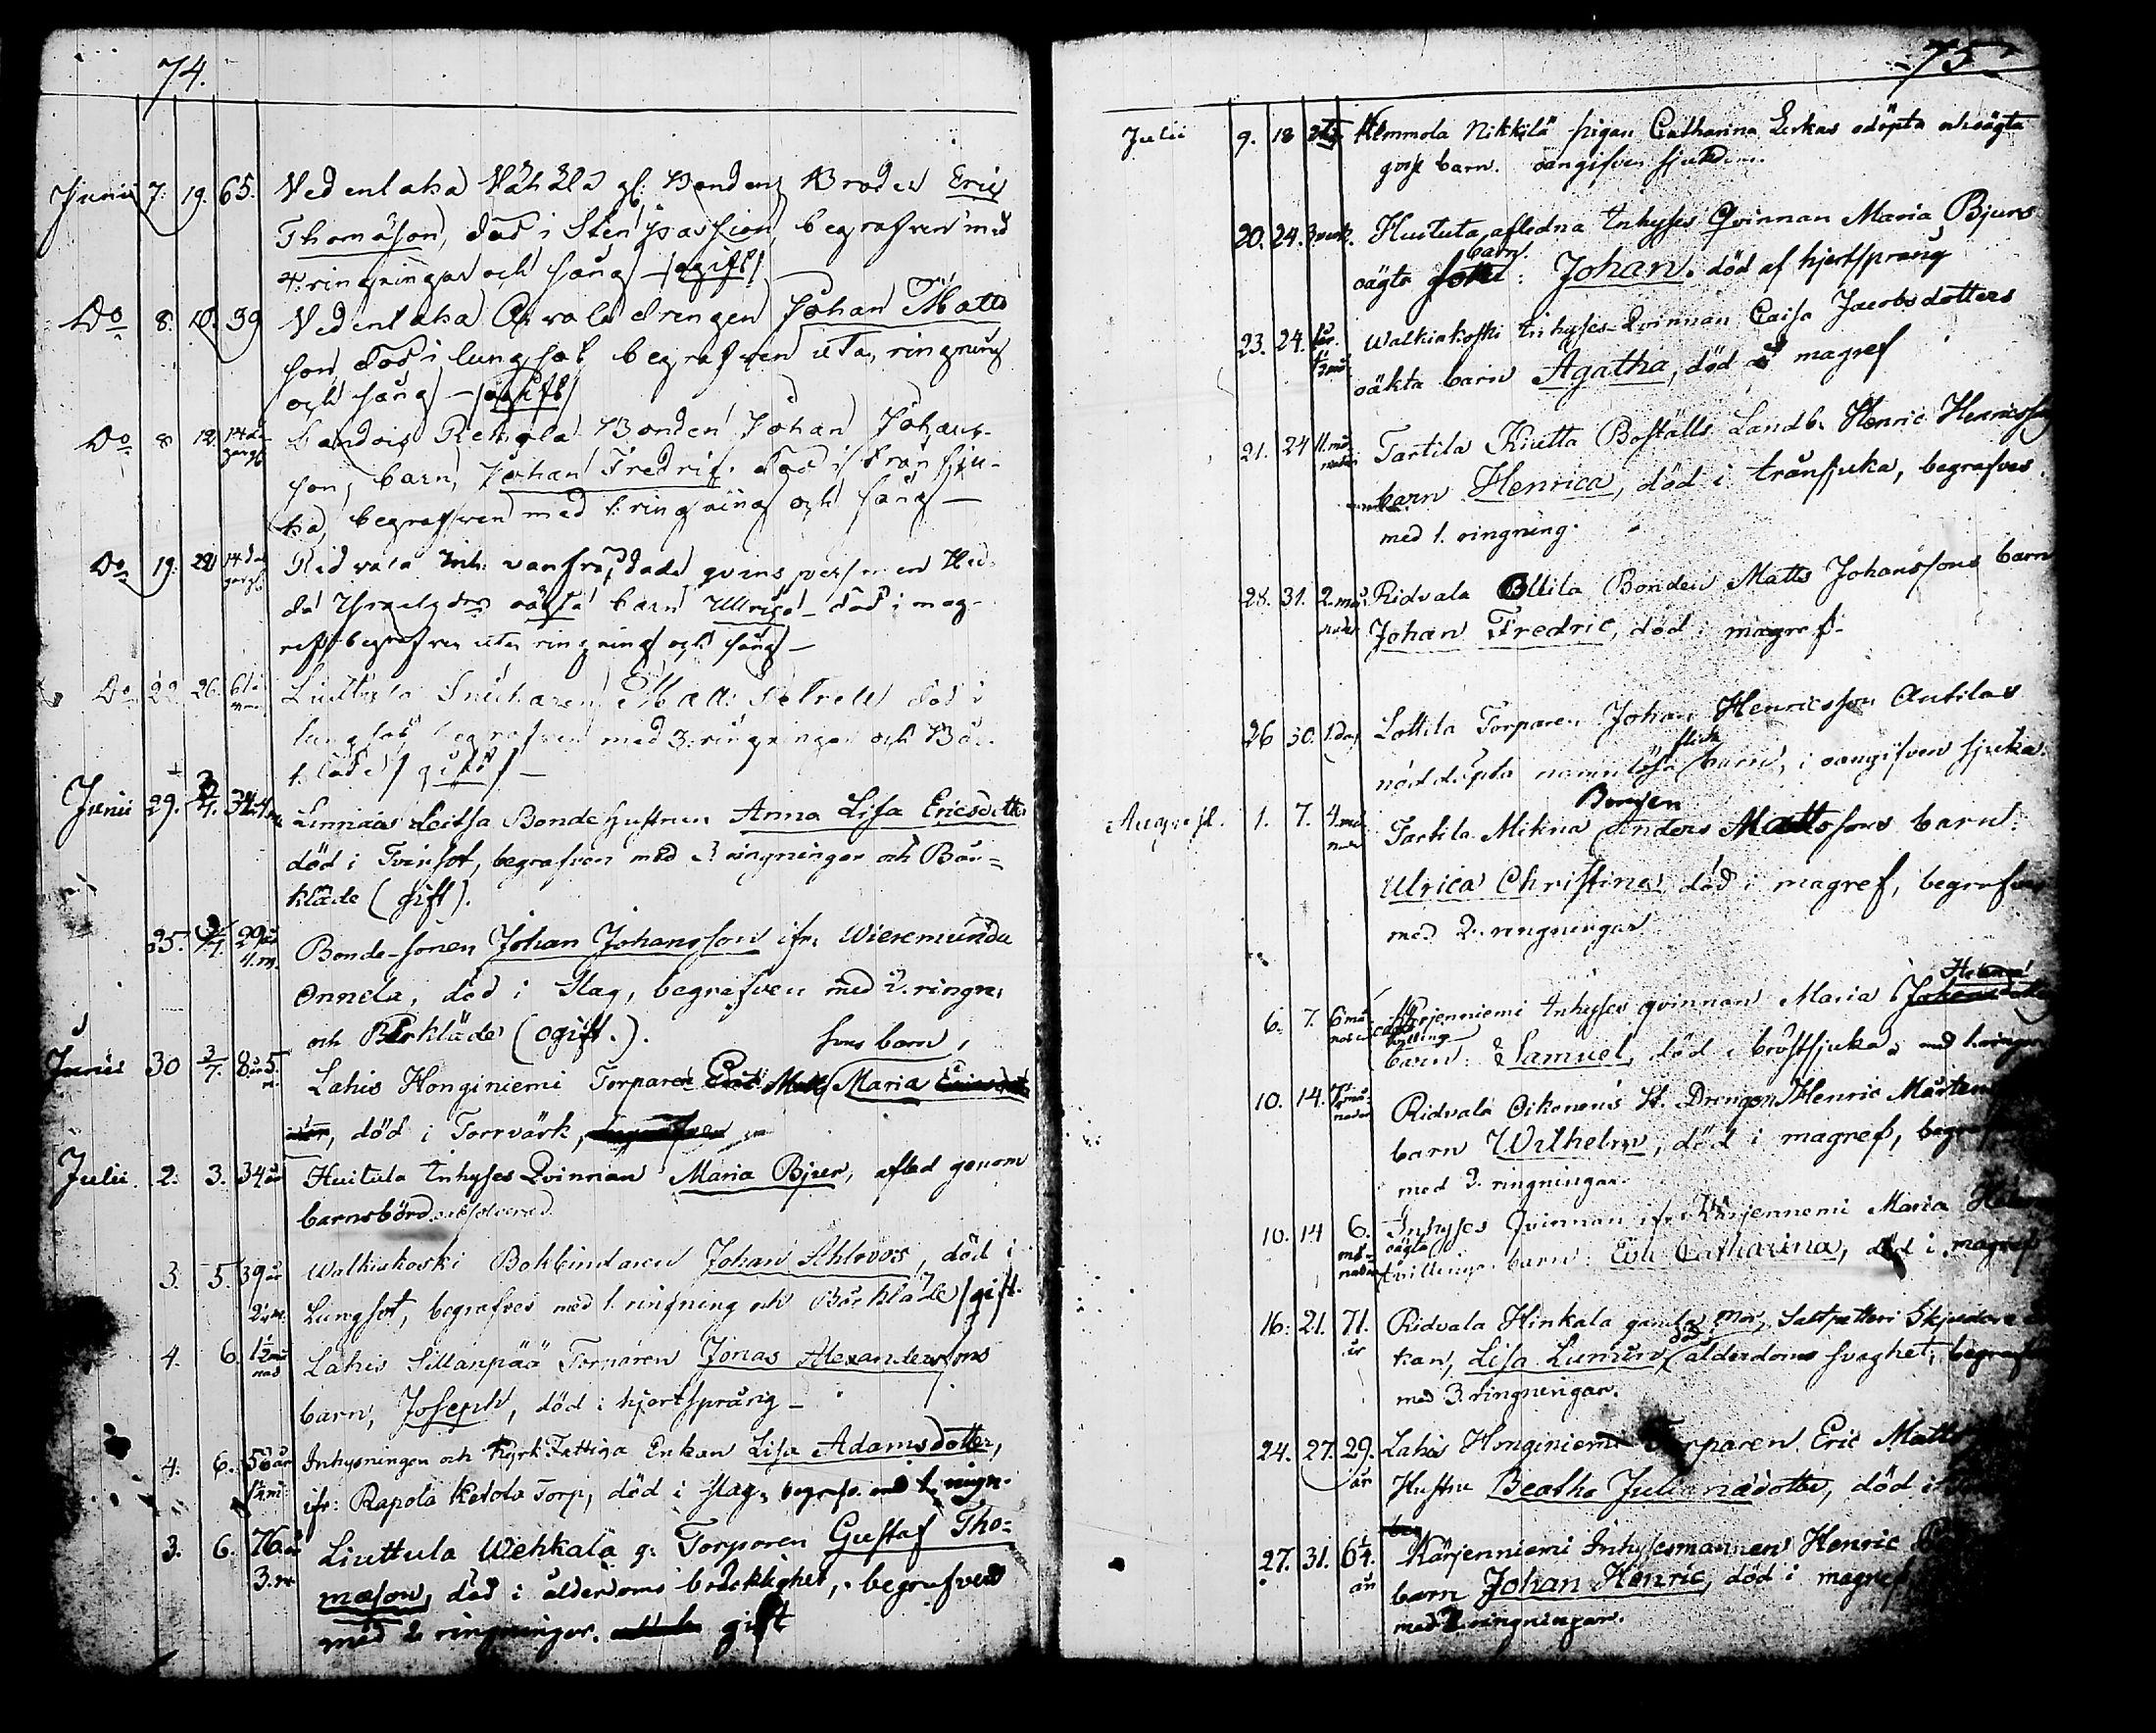 74.
Junii 7. 19. 65. Vedentaka Vähälä gl: Bondens Broder Eric
Thomason, död i Sten passion, begrafven med
4. ringningar och sång — (ogift) —
Do 8. 10. 39 Vedentaka Arvola drengen Johan Matts
son, död i lungsot begrafven utan ringning
och sång — (ogift)
Do 8 12. 14 da gar gl. Rekola Bonden Johan Johans-
son, barn, Johan Fredric, död i trån sju-
ka, begrafven med 1. ringning och sång —
Do 19. 22 14 da gar gl. Ridvala Inh: vanfrägdade qvins personen Hed-
da oägta barn Ulrica — död i mag-
ref begrafven utan ringning och sång —
Do 22. 26. Liuttula Snickaren Matts död i
lungsot, begrafven med 3. ringningar och Bår-
kläde (gift) —
Junii 29. 3/7. Leitsa Bonde hustrun Anna Lisa Ericsdotter
död i Tvinsot, begrafven med 3 ringningar och Bår=
kläde (gift).
25. 3/7. 29 år 4. m. Bonde-sonen Johan Johansson ifr. Wieremunda
Onnela, död i Slag, begrafven med 2. ringn:
och Bårkläde (ogift.).
sons barn,
Junii 30 3/7. 8 år 5 m. Lahis Honginiemi Torparen Eric Matts Maria
död i Torrvärk,
Julii. 2. 3. 34 år Huitula Inhyses Qvinnan Maria Bjur, afled genom
barnsbörd
3. 5. 39 år 2 m. Walkiakoski Bokbindaren Johan Ahlroos, död i
Lungsot, begrafves med 1. ringning och Bårkläde (gift.
4. 6. 1 1/2 må nad Lahis Sillanpää Torparen Jonas Alexandersons
barn, Joseph, död i hjertsprång —
4. 6. 56 år Inhysningen och Kyrk Fattiga Enkan Lisa Adamsdotter,
ifr: Rapola Ketola Torp, död i slag, begrafv. med 1. ringn.
3. 6. 76 år 3. m Liuttula Wehkala g: Torparen Gustaf Tho=
mason, död i ålderdoms bräcklighet, begrafven
med 2 ringningar. gift
75
Julii 9. 18 Kemmola Nikkilä pigan Catharina odöpta oägta
gosse barn. oangifven sjukdom.
20. 24. 3 veck. Huituta afledna Inhyses Qvinnan Maria Bjurs
barn
oägta Johan. död af hjertsprång
23. 24. Walkiakoski Inhyses-Qvinnan Caisa Jacobsdotters
oäkta barn Agatha, död i magref
21. 24 11. må nader Tartila Kiutta Boställs Landb. Henric Henricssons
barn Henrica, död i trånsjuka, begrafves
med 1. ringning.
28. 31. 2. må nader Ridvala Ollila Bonden Matts Johanssons barn
Johan Fredric, död i magref.
26 30. 1. dag Lottila Torparen Johan Henricsson Antilas
flicke
nöddöpta namnlösa barn, i oangifven sjuka.
Bonden
Augusti. 1. 7. 4. må nader Tartila Mikina Anders Mattssons barn:
Ulrica Christina, död i magref, begrafves
med 2. ringningar
6. 7. 6 må nader Kärjenniemi Inhyses qvinnan Maria
oägta tvilling
barn: Samuel, död i bröstsjuka, med 1. ringn
10. 14. nader Ridvala Oikonens St. Drengen Henric Mårtens
barn Wilhelm, död i magref, begraf
med 3. ringningar.
10. 14 6. må nader Inhyses Qvinnan ifr. Kärjenniemi Maria
oägta
tvillings barn: Eva Catharina, död i magref
16. 21. 71. år Ridvala Hinkala gamla mor, Saltpetteri Sjudare En
kan, Lisa Lunden, död ålderdoms svaghet, begraf
med 3. ringningar.
24. 27. 29. år Lahis Honginiemi Torparen Eric Matts
Hustru Beatha Juliana dotter, död i
27. 31. 6 1/4. år Kärjenniemi Inhysesmannen Henric
barn Johan Henric, död i magref,
med 2. ringningar.